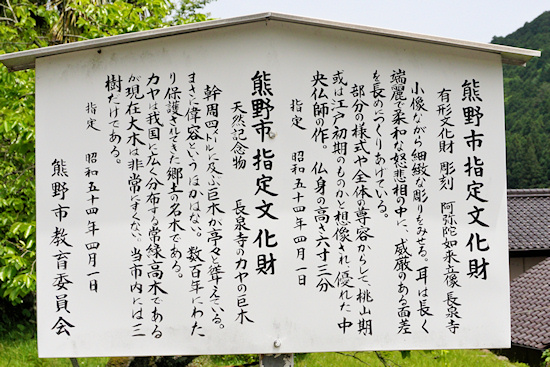 熊野市指定文化財
有形文化財 彫刻 阿弥陀如来立像 長泉寺
小像ながら細緻な彫りをみせる。耳は長く
端麗で柔和な慈悲相の中に、威厳のある面差
を長めにつくりあげている。
部分の様式や全体の尊容からして、桃山期
或は江戸初期のものかと想像され、優れた中
央仏師の作。仏身の高さ六寸三分
指定 昭和五十四年四月一日
熊野市指定文化財
天然記念物 長泉寺のカヤの巨木
幹周四メートルに及ぶ巨木が亭々と聳えている。
まさに偉容というほかはない。数百年にわた
り保護されてきた郷土の名木である。
カヤは我国に広く分布する常緑高木である
が現在大木は非常にすくない。当市内には三
樹だけである。
指定 昭和五十四年四月一日
熊野市教育委員会